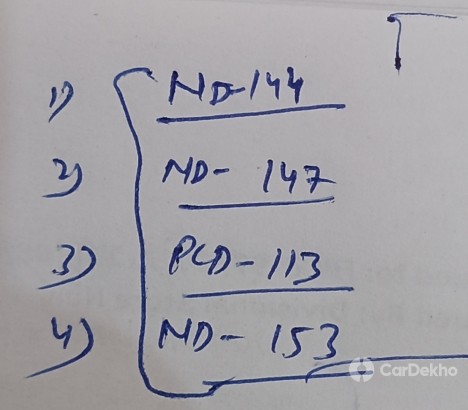 1) ND-144
2) ND- 147
3) PCD-113
4) ND- 153
CarDekho